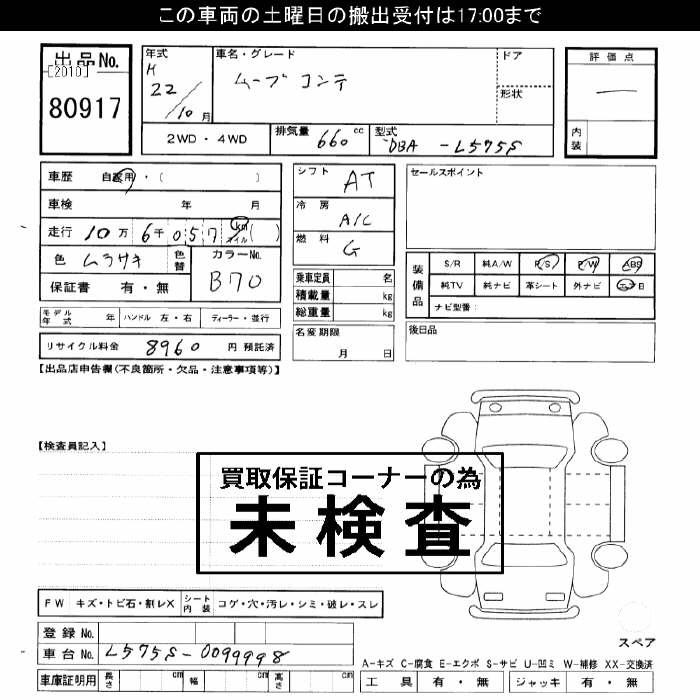 この車両の土曜日の搬出受付は17:00まで
出品No.
[2010]
80917
年式
H
22/10月
車名・グレード
ムーブコンテ
ドア
形状
評価点
―
内装
2WD・4WD
排気量 660cc
型式 DBA-L575S
車歴 自家用・( )
車検 年 月
走行 10万6千057 km マイル( )
色 ムラサキ 色替
カラーNo.
B70
保証書 有・無
モデル年式 年 ハンドル 左・右 ディーラー・並行
リサイクル料金 8960 円 預託済
シフト AT
冷房 A/C
燃料 G
乗車定員 名
積載量 kg
総重量 kg
名変期限
月 日
セールスポイント
装備品
S/R 純A/W P/S P/W ABS
純TV 純ナビ 革シート 外ナビ エアB
ナビ型番:
後日品
【出品店申告欄(不良箇所・欠品・注意事項等)】
【検査員記入】
買取保証コーナーの為
未検査
FW キズ・トビ石・割レX シート内装 コゲ・穴・汚レ・シミ・破レ・スレ
登録No.
車台No. L575S-0099998
車庫証明用 長さ cm 幅 cm 高さ cm
スペア
A-キズ C-腐食 E-エクボ S-サビ U-凹ミ W-補修 XX-交換済
工具 有・無 ジャッキ 有・無